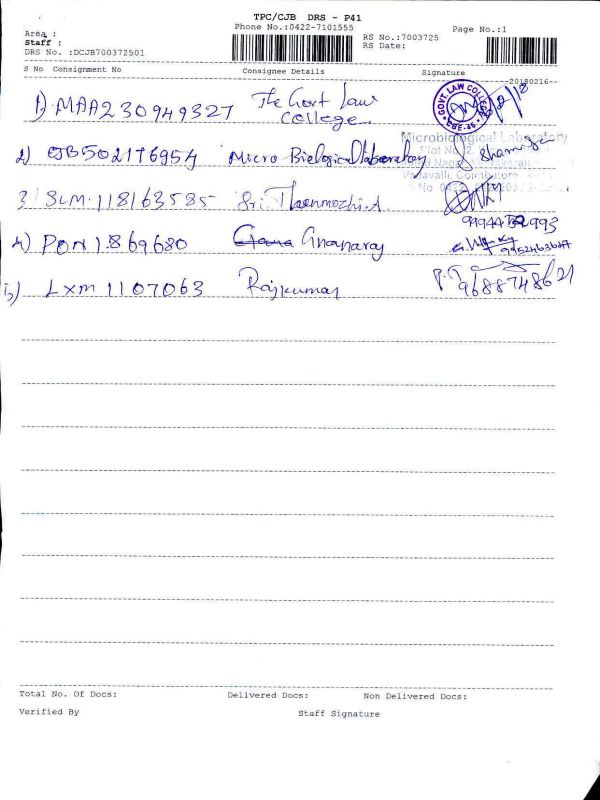 TPC/CJB DRS - P41
Phone No.:0422-7101555
Page No.:1
Area :
Staff :
DRS No. :DCJB700372501
RS No.:7003725
RS Date:
S No Consignment No Consignee Details Signature
20180216
1) MAA230949327 The Govt Law College
GOVT. LAW COLLEGE
CBE-46
Microbiological Laboratory
2) Micro Biological laboratory Shamuga
3 SLM 118163585 Sri Thenmozhi.A
4) PON 1869680 Gnanaraj
5) LXM 1107063 Rajkumar
9688748621
Total No. Of Docs: Delivered Docs: Non Delivered Docs:
Verified By Staff Signature